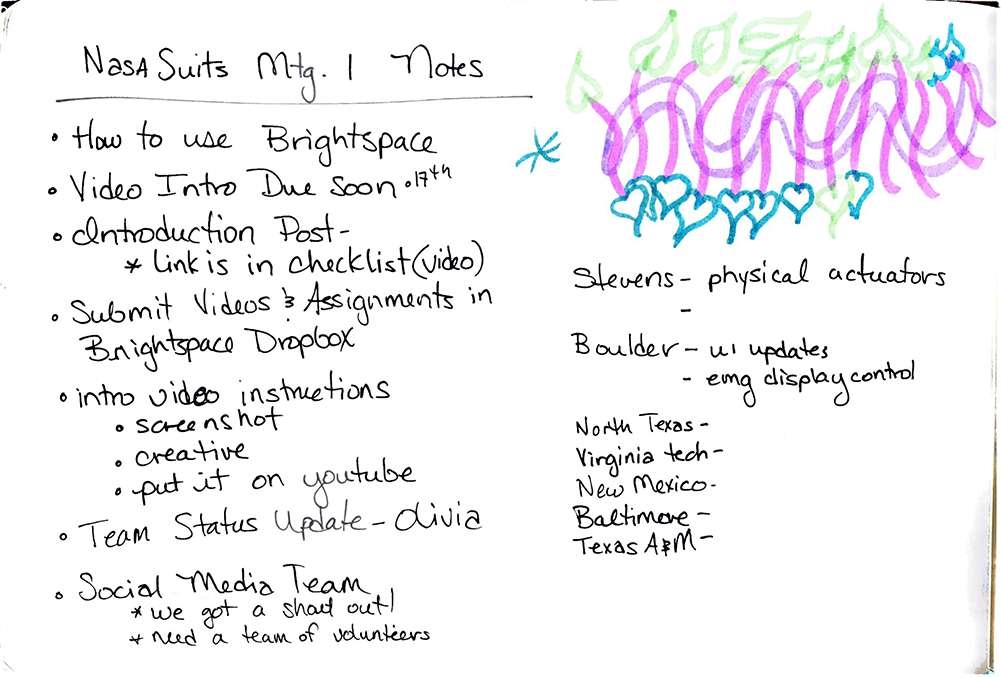 NASA Suits Mtg. 1 Notes
• How to use Brightspace
• Video Intro Due Soon • 17th
• Introduction Post -
* Link is in checklist (video)
• Submit Videos & Assignments in
Brightspace Dropbox
• intro video instructions
• screenshot
• creative
• put it on youtube
• Team Status Update - Olivia
• Social Media Team
* we got a shout out!
* need a team of volunteers
Stevens - physical actuators
-
Boulder - ui updates
- emg display control
North Texas -
Virginia tech -
New Mexico -
Baltimore -
Texas A&M -